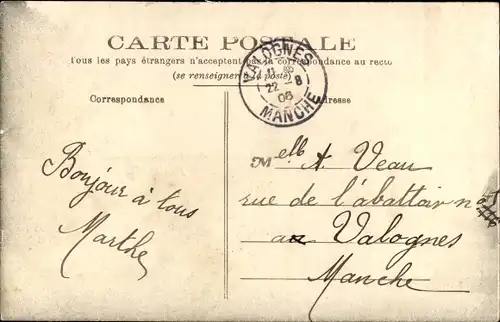 CARTE POSTALE
Tous les pays étrangers n'acceptent pas la correspondance au recto
(se renseigner à la poste)
Correspondance
Adresse
VALOGNES
22 - 8
06
MANCHE
Bonjour à tous
Marthe
Melle A. Veau
rue de l'abattoir n
Valognes
Manche